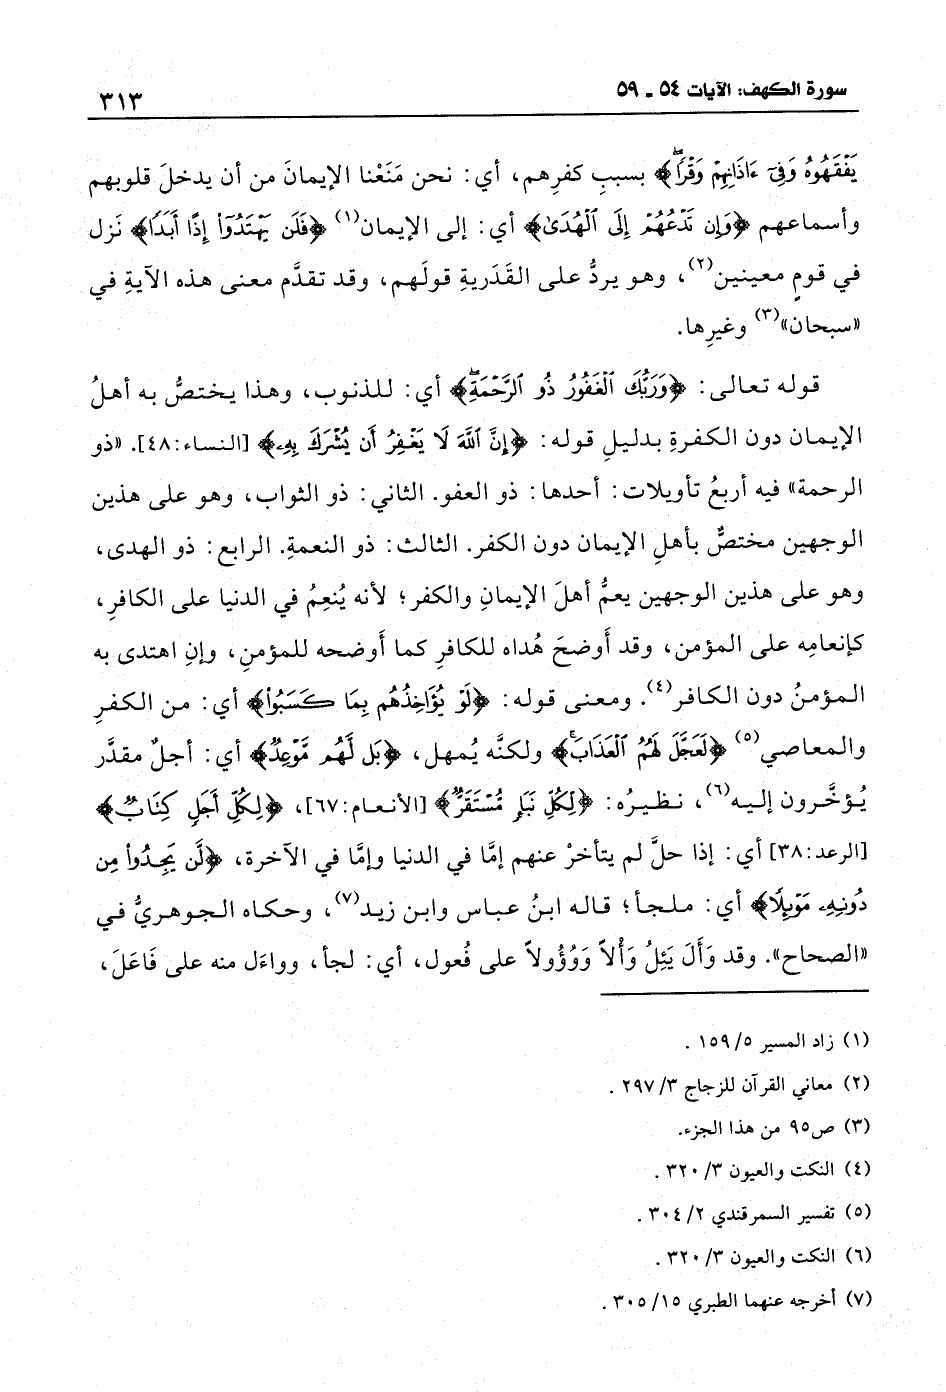 سورة الكهف: الآيات ٥٤ ـ ٥٩
٣١٣
يَفْقَهُوهُ وَفِىٓ ءَاذَانِهِمْ وَقْرًاۖ﴾ بسببِ كفرِهم، أي: نحن مَنَعْنا الإيمانَ من أن يدخلَ قلوبهم
وأسماعهم ﴿وَإِن تَدْعُهُمْ إِلَى ٱلْهُدَىٰ﴾ أي: إلى الإيمان(١) ﴿فَلَن يَهْتَدُوٓا۟ إِذًا أَبَدًا﴾ نَزل
في قومٍ معينين(٢)، وهو يردُّ على القَدَريةِ قولَهم، وقد تقدَّم معنى هذه الآيةِ في
«سبحان»(٣) وغيرِها.
قوله تعالى: ﴿وَرَبُّكَ ٱلْغَفُورُ ذُو ٱلرَّحْمَةِۖ﴾ أي: للذنوب، وهذا يختصُّ به أهلُ
الإيمان دون الكفرةِ بدليلِ قوله: ﴿إِنَّ ٱللَّهَ لَا يَغْفِرُ أَن يُشْرَكَ بِهِۦ﴾ [النساء:٤٨]. «ذو
الرحمة» فيه أربعُ تأويلات: أحدها: ذو العفو. الثاني: ذو الثواب، وهو على هذين
الوجهين مختصٌّ بأهلِ الإيمان دون الكفر. الثالث: ذو النعمةِ. الرابع: ذو الهدى،
وهو على هذين الوجهين يعمُّ أهلَ الإيمانِ والكفر؛ لأنه يُنعِمُ في الدنيا على الكافرِ،
كإنعامِه على المؤمن، وقد أَوضحَ هُداه للكافرِ كما أَوضحه للمؤمنِ، وإنِ اهتدى به
المؤمنُ دون الكافر(٤). ومعنى قوله: ﴿لَوْ يُؤَاخِذُهُم بِمَا كَسَبُوا۟﴾ أي: من الكفرِ
والمعاصي(٥) ﴿لَعَجَّلَ لَهُمُ ٱلْعَذَابَۚ﴾ ولكنَّه يُمهل، ﴿بَل لَّهُم مَّوْعِدٌ﴾ أي: أجلٌ مقدَّر
يُؤخَّرون إليه(٦)، نظيرُه: ﴿لِكُلِّ نَبَإٍ مُّسْتَقَرٌّ﴾ [الأنعام:٦٧]، ﴿لِكُلِّ أَجَلٍ كِتَابٌ﴾
[الرعد:٣٨] أي: إذا حلَّ لم يتأخرْ عنهم إمَّا في الدنيا وإمَّا في الآخرة، ﴿لَّن يَجِدُوا۟ مِن
دُونِهِۦ مَوْئِلًا﴾ أي: ملجأ؛ قاله ابنُ عباس وابن زيد(٧)، وحكاه الجوهريُّ في
«الصحاح». وقد وَأَلَ يَئِلُ وَأْلاً وَوُؤُولاً على فُعول، أي: لجأ، وواءَل منه على فَاعَلَ،
(١) زاد المسير ٥/ ١٥٩ .
(٢) معاني القرآن للزجاج ٣/ ٢٩٧ .
(٣) ص٩٥ من هذا الجزء.
(٤) النكت والعيون ٣/ ٣٢٠ .
(٥) تفسير السمرقندي ٢/ ٣٠٤ .
(٦) النكت والعيون ٣/ ٣٢٠ .
(٧) أخرجه عنهما الطبري ١٥/ ٣٠٥ .